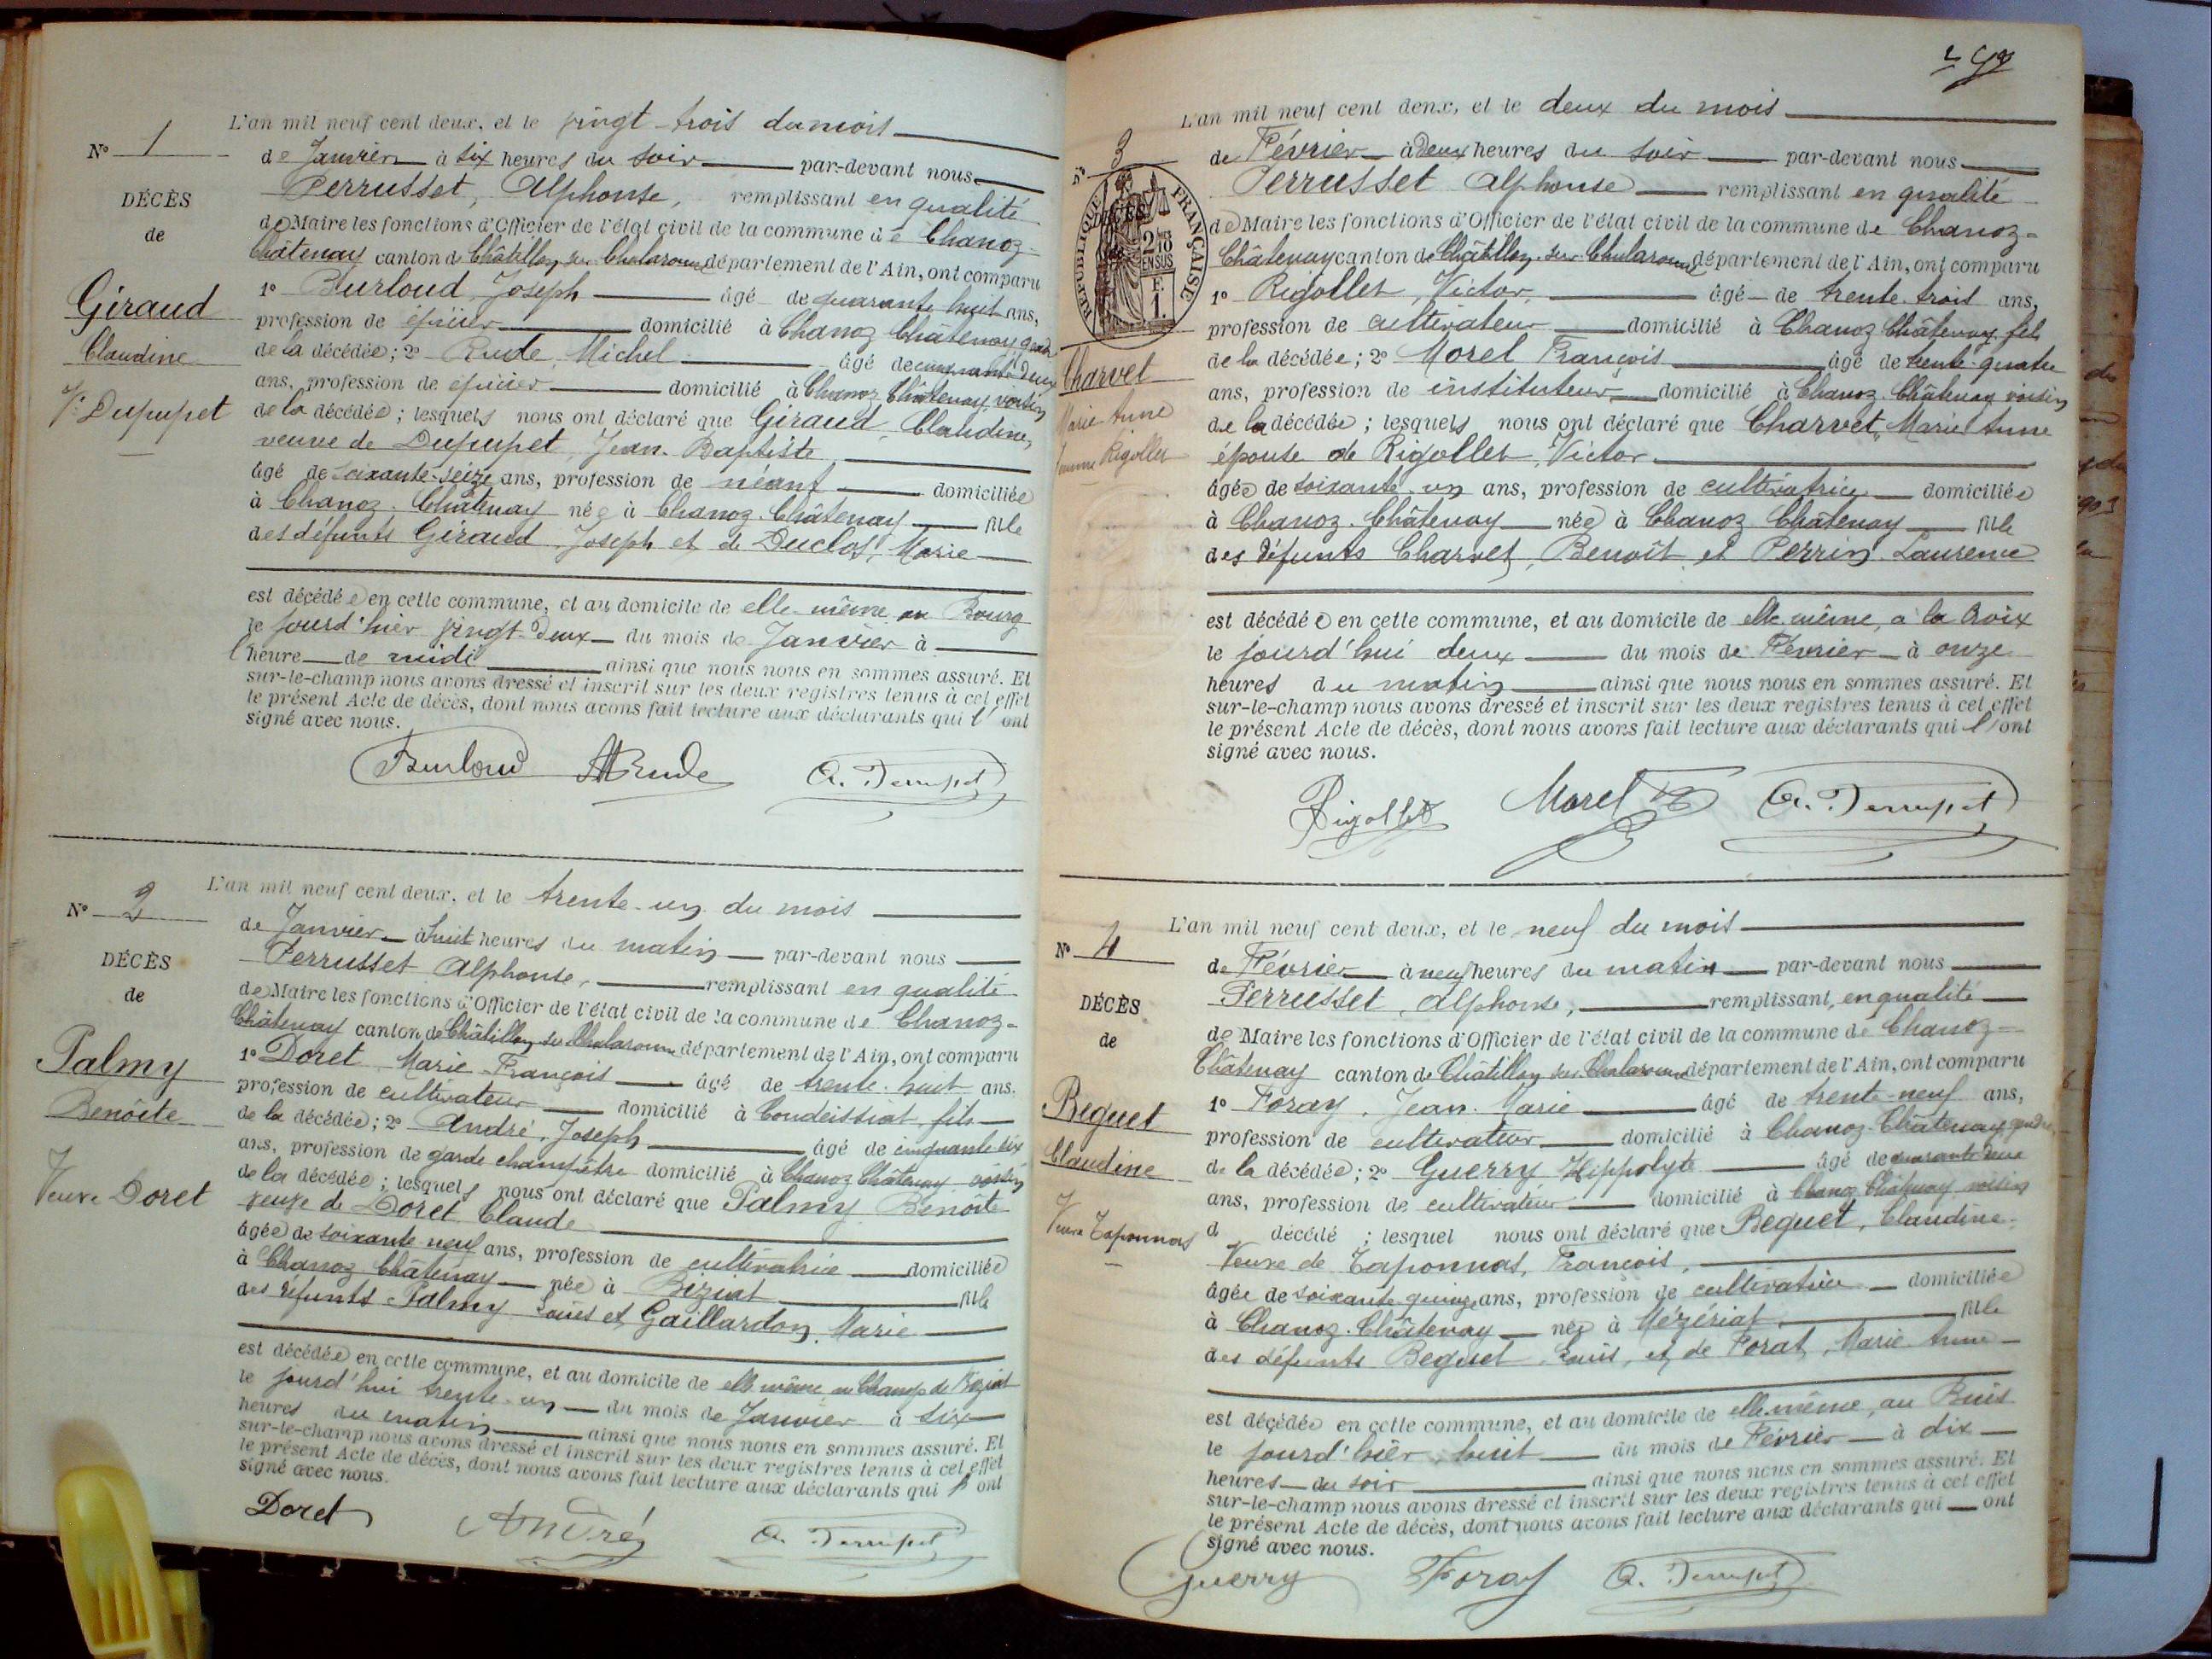 N° 1
DÉCÈS
de
Giraud
Claudine
Vve Dupupet
L'an mil neuf cent deux, et le vingt-trois du mois
de Janvier à six heures du soir par-devant nous
Perrusset, Alphonse, remplissant en qualité
de Maire les fonctions d'Officier de l'état civil de la commune de Chanoz-
Châtenay canton de Châtillon sur Chalaronne département de l'Ain, ont comparu
1° Burloud, Joseph âgé de quarante huit ans,
profession de épicier domicilié à Chanoz Châtenay gendre
de la décédée; 2° Rude, Michel âgé de cinquante deux
ans, profession de épicier domicilié à Chanoz Châtenay, voisin
de la décédée; lesquels nous ont déclaré que Giraud, Claudine,
veuve de Dupupet, Jean-Baptiste
âgé de soixante-seize ans, profession de néant domiciliée
à Chanoz-Châtenay née à Chanoz-Châtenay fille
des défunts Giraud, Joseph et de Duclos, Marie
est décédée en cette commune, et au domicile de elle-même au Bourg
le jourd'hier vingt-deux du mois de Janvier à
l'heure de midi ainsi que nous nous en sommes assuré. Et
sur-le-champ nous avons dressé et inscrit sur les deux registres tenus à cet effet
le présent Acte de décès, dont nous avons fait lecture aux déclarants qui l'ont
signé avec nous.
Burloud MRude A. Perrusset
N° 2
DÉCÈS
de
Palmy
Benoîte
Veuve Doret
L'an mil neuf cent deux, et le trente-un du mois
de Janvier à huit heures du matin par-devant nous
Perrusset Alphonse, remplissant en qualité
de Maire les fonctions d'Officier de l'état civil de la commune de Chanoz-
Châtenay canton de Châtillon sur Chalaronne département de l'Ain, ont comparu
1° Doret Marie François âgé de trente-huit ans.
profession de cultivateur domicilié à Condeissiat, fils
de la décédée; 2° André, Joseph âgé de cinquante six
ans, profession de garde champêtre domicilié à Chanoz Châtenay voisin
de la décédée; lesquels nous ont déclaré que Palmy Benoîte
veuve de Doret Claude
âgée de soixante neuf ans, profession de cultivatrice domiciliée
à Chanoz Châtenay née à Biziat fille
des défunts Palmy Louis et Gaillardon, Marie
est décédée en cette commune, et au domicile de elle même au Champ de Biziat
le jourd'hui trente-un du mois de Janvier à six
heures du matin ainsi que nous nous en sommes assuré. Et
sur-le-champ nous avons dressé et inscrit sur les deux registres tenus à cet effet
le présent Acte de décès, dont nous avons fait lecture aux déclarants qui l'ont
signé avec nous.
Doret André A. Perrusset
N° 3
RÉPUBLIQUE FRANÇAISE
DÉCÈS
2/10
EN SUS
F.
1.
Charvet
Marie Anne
femme Rigollet
L'an mil neuf cent deux, et le deux du mois
de Février à deux heures du soir par-devant nous
Perrusset Alphonse remplissant en qualité
de Maire les fonctions d'Officier de l'état civil de la commune de Chanoz-
Châtenay canton de Châtillon-sur-Chalaronne département de l'Ain, ont comparu
1° Rigollet, Victor, âgé de trente-trois ans,
profession de cultivateur domicilié à Chanoz Châtenay fils
de la décédée; 2° Morel François âgé de trente-quatre
ans, profession de instituteur domicilié à Chanoz-Châtenay voisin
de la décédée; lesquels nous ont déclaré que Charvet, Marie Anne
épouse de Rigollet, Victor
âgée de soixante-un ans, profession de cultivatrice domiciliée
à Chanoz-Châtenay née à Chanoz Châtenay fille
des défunts Charvet, Benoît et Perrin Laurence
est décédée en cette commune, et au domicile de elle même, à la Croix
le jourd'hui deux du mois de Février à onze
heures du matin ainsi que nous nous en sommes assuré. Et
sur-le-champ nous avons dressé et inscrit sur les deux registres tenus à cet effet
le présent Acte de décès, dont nous avons fait lecture aux déclarants qui l'ont
signé avec nous.
Rigollet Morel A. Perrusset
N° 4
DÉCÈS
de
Beguet
Claudine
Veuve Taponnas
L'an mil neuf cent deux, et le neuf du mois
de Février à neuf heures du matin par-devant nous
Perrusset, Alphonse, remplissant, en qualité
de Maire les fonctions d'Officier de l'état civil de la commune de Chanoz-
Châtenay canton de Châtillon sur Chalaronne département de l'Ain, ont comparu
1° Foray, Jean-Marie âgé de trente-neuf ans,
profession de cultivateur domicilié à Chanoz-Châtenay gendre,
de la décédée; 2° Guerry, Hippolyte âgé de quarante deux
ans, profession de cultivateur domicilié à Chanoz Châtenay voisin
d décédé ; lesquel nous ont déclaré que Beguet, Claudine,
Veuve de Taponnas, François,
âgée de soixante quinze ans, profession de cultivatrice domiciliée
à Chanoz-Châtenay née à Mézériat fille
des défunts Beguet, Louis, et de Forat, Marie-Anne
est décédée en cette commune, et au domicile de elle-même, au Buis
le jourd'hier, huit du mois de Février à dix
heures du soir ainsi que nous nous en sommes assuré. Et
sur-le-champ nous avons dressé et inscrit sur les deux registres tenus à cet effet
le présent Acte de décès, dont nous avons fait lecture aux déclarants qui ont
signé avec nous.
Guerry Foray A. Perrusset